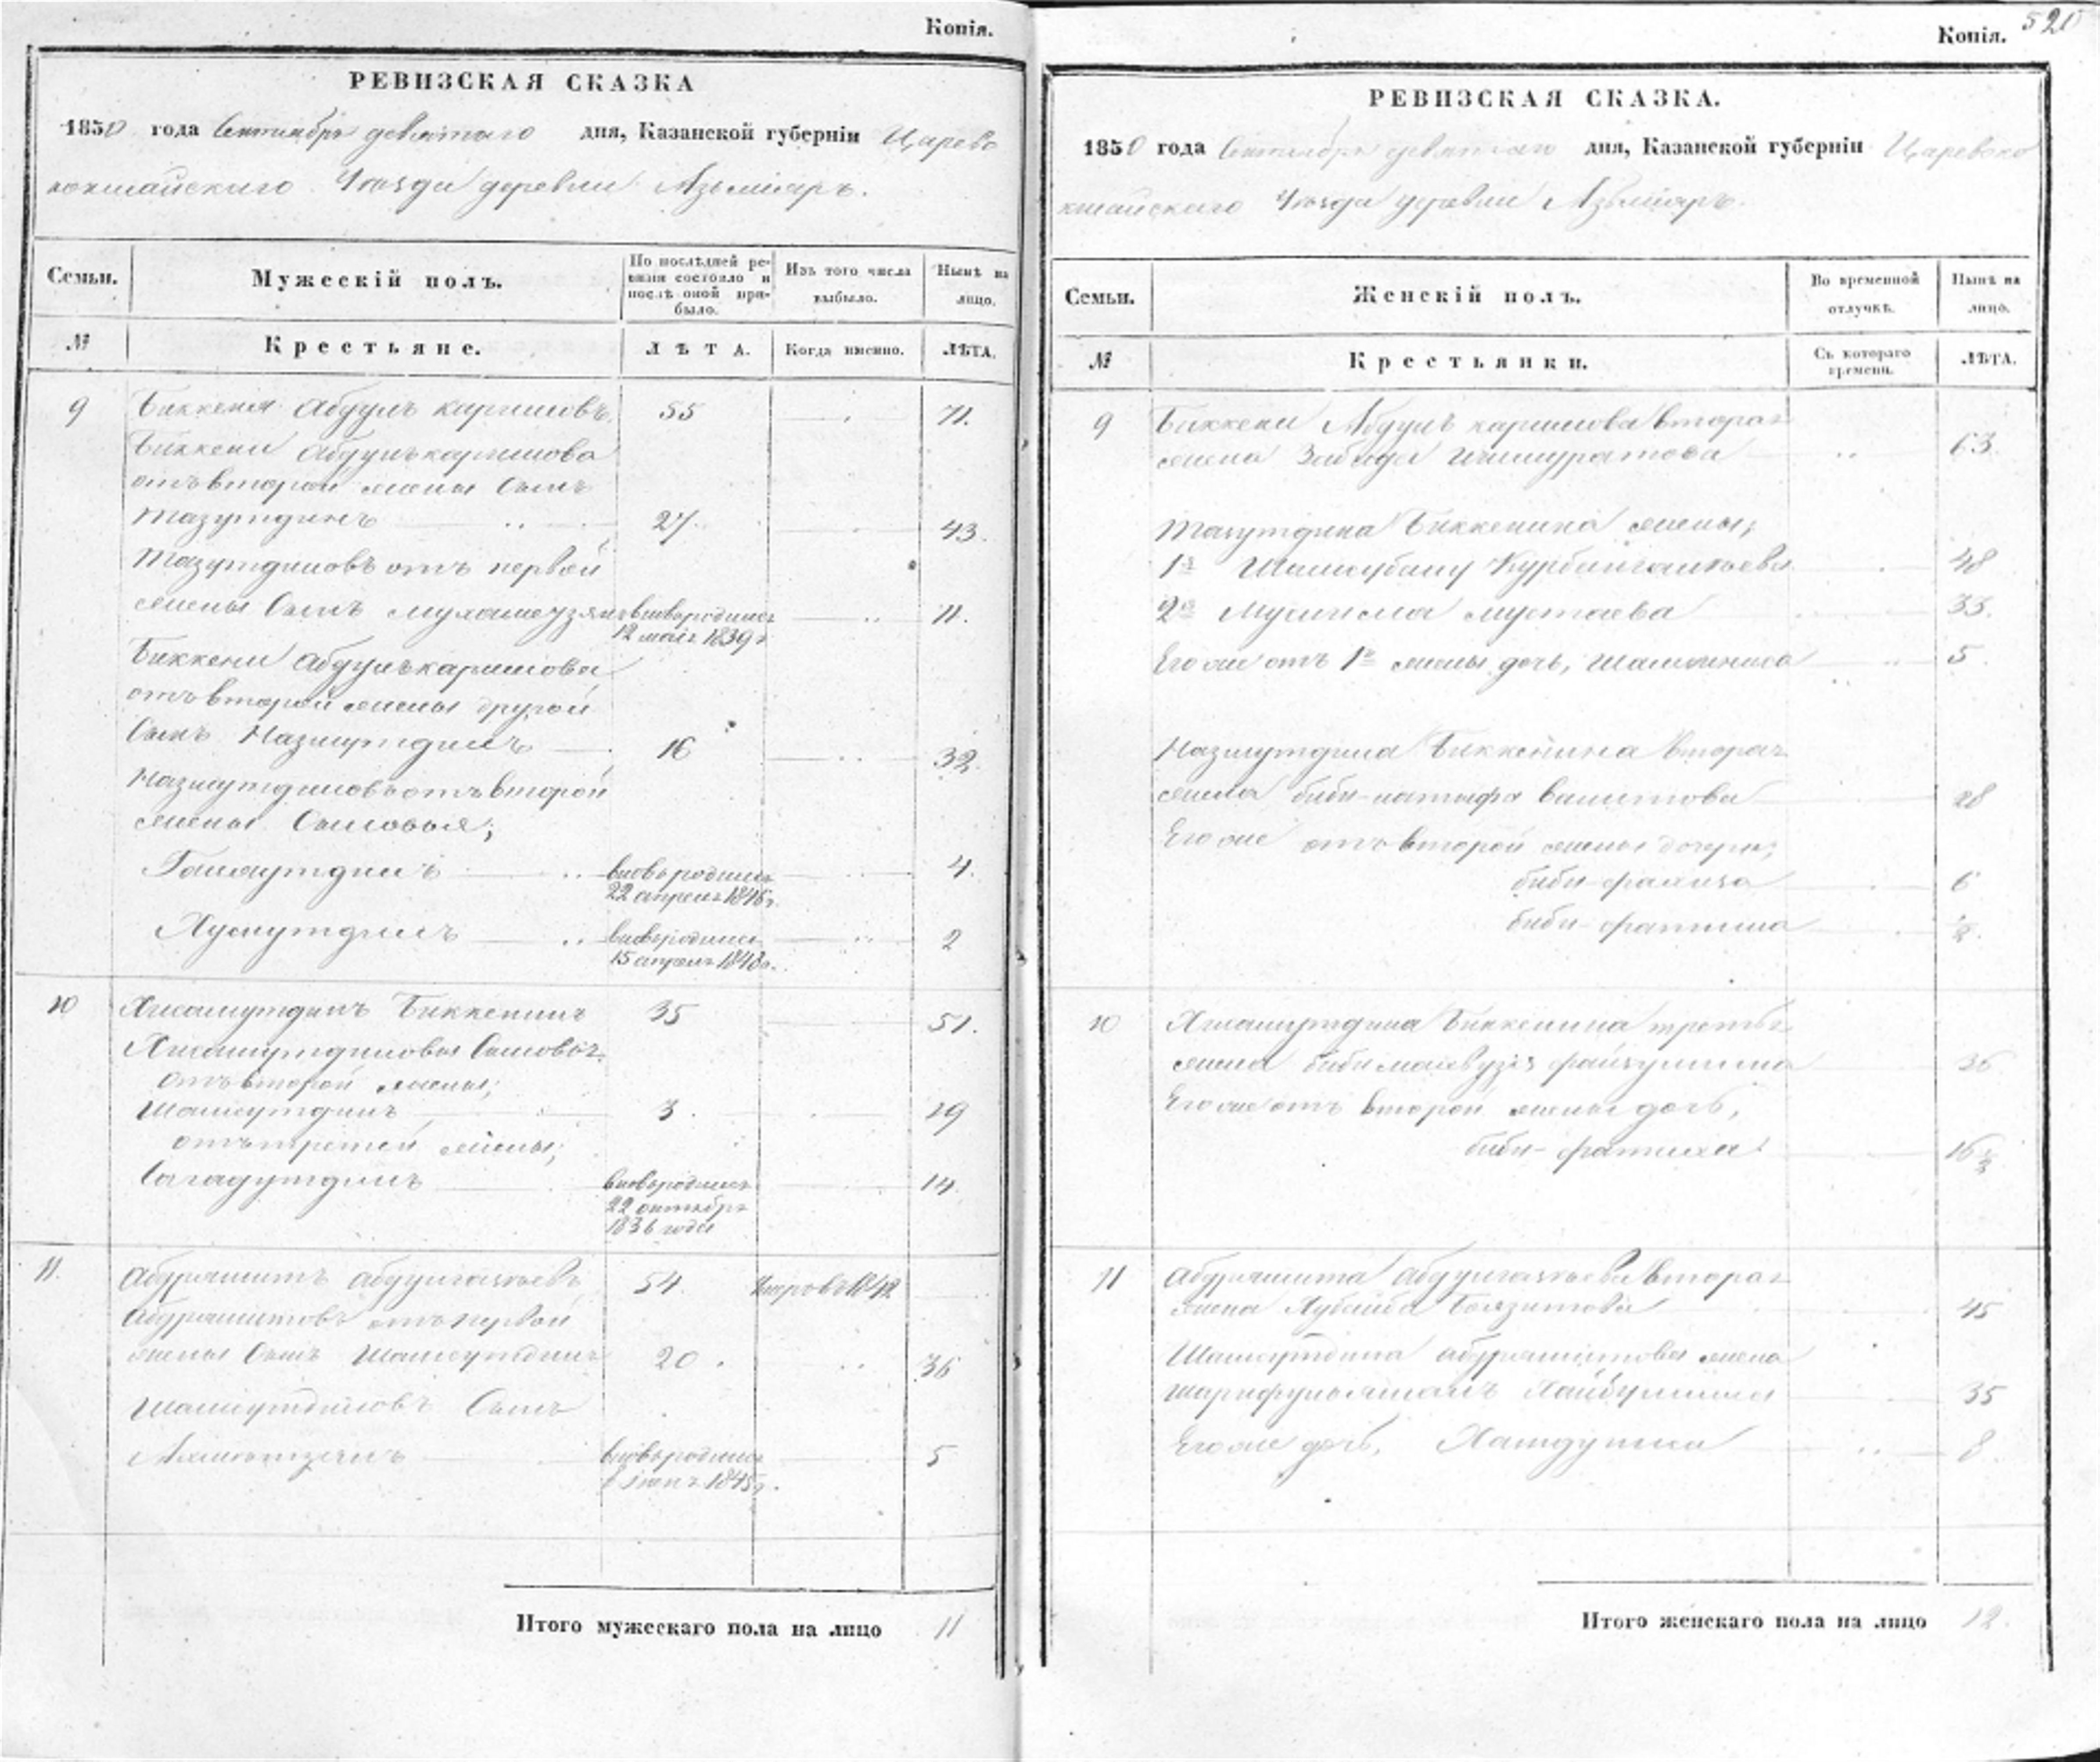 Копія.
РЕВИЗСКАЯ СКАЗКА
1850 года Сентября девятаго дня, Казанской губерніи Царево
кокшайскаго Уѣзда деревни Азъміяръ.
Семьи. Мужескій полъ. По послѣдней ревизіи состояло и послѣ оной прибыло. Изъ того числа выбыло. Нынѣ на лицо.
№ Крестьяне. ЛѢТА. Когда именно. ЛѢТА.
9 Биккеня Абдулъ каримовъ 55 71.
Биккени Абдулъкаримова
отъ второй жены Сынъ
Мазутдинъ 27. 43.
Мазутдиновъ отъ первой
жены Сынъ Мухаметзянъ вновь родился 11.
12 маія 1839 г
Биккени Абдулъкаримова
отъ второй жены другой
Сынъ Назмутдинъ 16 32.
Назмутдиновъ отъ второй
жены Сыновья;
Гимаутдинъ вновь родился 4.
22 апреля 1846 г.
Хуснутдинъ вновь родился 2
15 апреля 1848 г.
10 Хисамутдинъ Биккенинъ 35 51.
Хисамутдиновы Сыновья
отъ второй жены;
Шамсутдинъ 3. 19
отъ третей жены;
Сагадутдинъ вновь родился 14.
22 октября
1836 года
11. Абдряшитъ Абдулгазыевъ 54. Умеръ въ 1842
Абдряшитовъ отъ первой
жены Сынъ Шамсутдинъ 20. 36
Шамсутдиновъ Сынъ
вновь родился 5
1845 г.
Итого мужескаго пола на лицо 11
520
Копія.
РЕВИЗСКАЯ СКАЗКА.
1850 года Сентября девятаго дня, Казанской губерніи Царевоко
кшайскаго Уѣзда деревни Азъміяръ.
Семьи. Женскій полъ. Во временной отлучкѣ. Нынѣ на лицо.
№ Крестьянки. Съ котораго времени. ЛѢТА.
9 Биккени Абдулъ каримова вторая
жена Забида Ишмуратова 63.
Мазутдина Биккенина жены;
1я Шамсубану Курбангалиева 48
2я Муслима Мустаева 33.
Его же отъ 1й жены дочь, Шамсиниса 5.
Назмутдина Биккенина вторая
жена биби-латыфа Вагитова 28
Его же отъ второй жены дочери;
биби-фаиза 6
биби-фатима ½.
10 Хисамутдина Биккенина третья
жена файзуллина 36
Его же отъ второй жены дочь,
биби-фатиха 16½
11 Абдряшита Абдулгазыева вторая
жена Хубейба Баязитова 45
Шамсутдина Абдряшитова жена
Шарифульямалъ Хайбуллина 35
Его же дочь, 8
Итого женскаго пола на лицо 12.